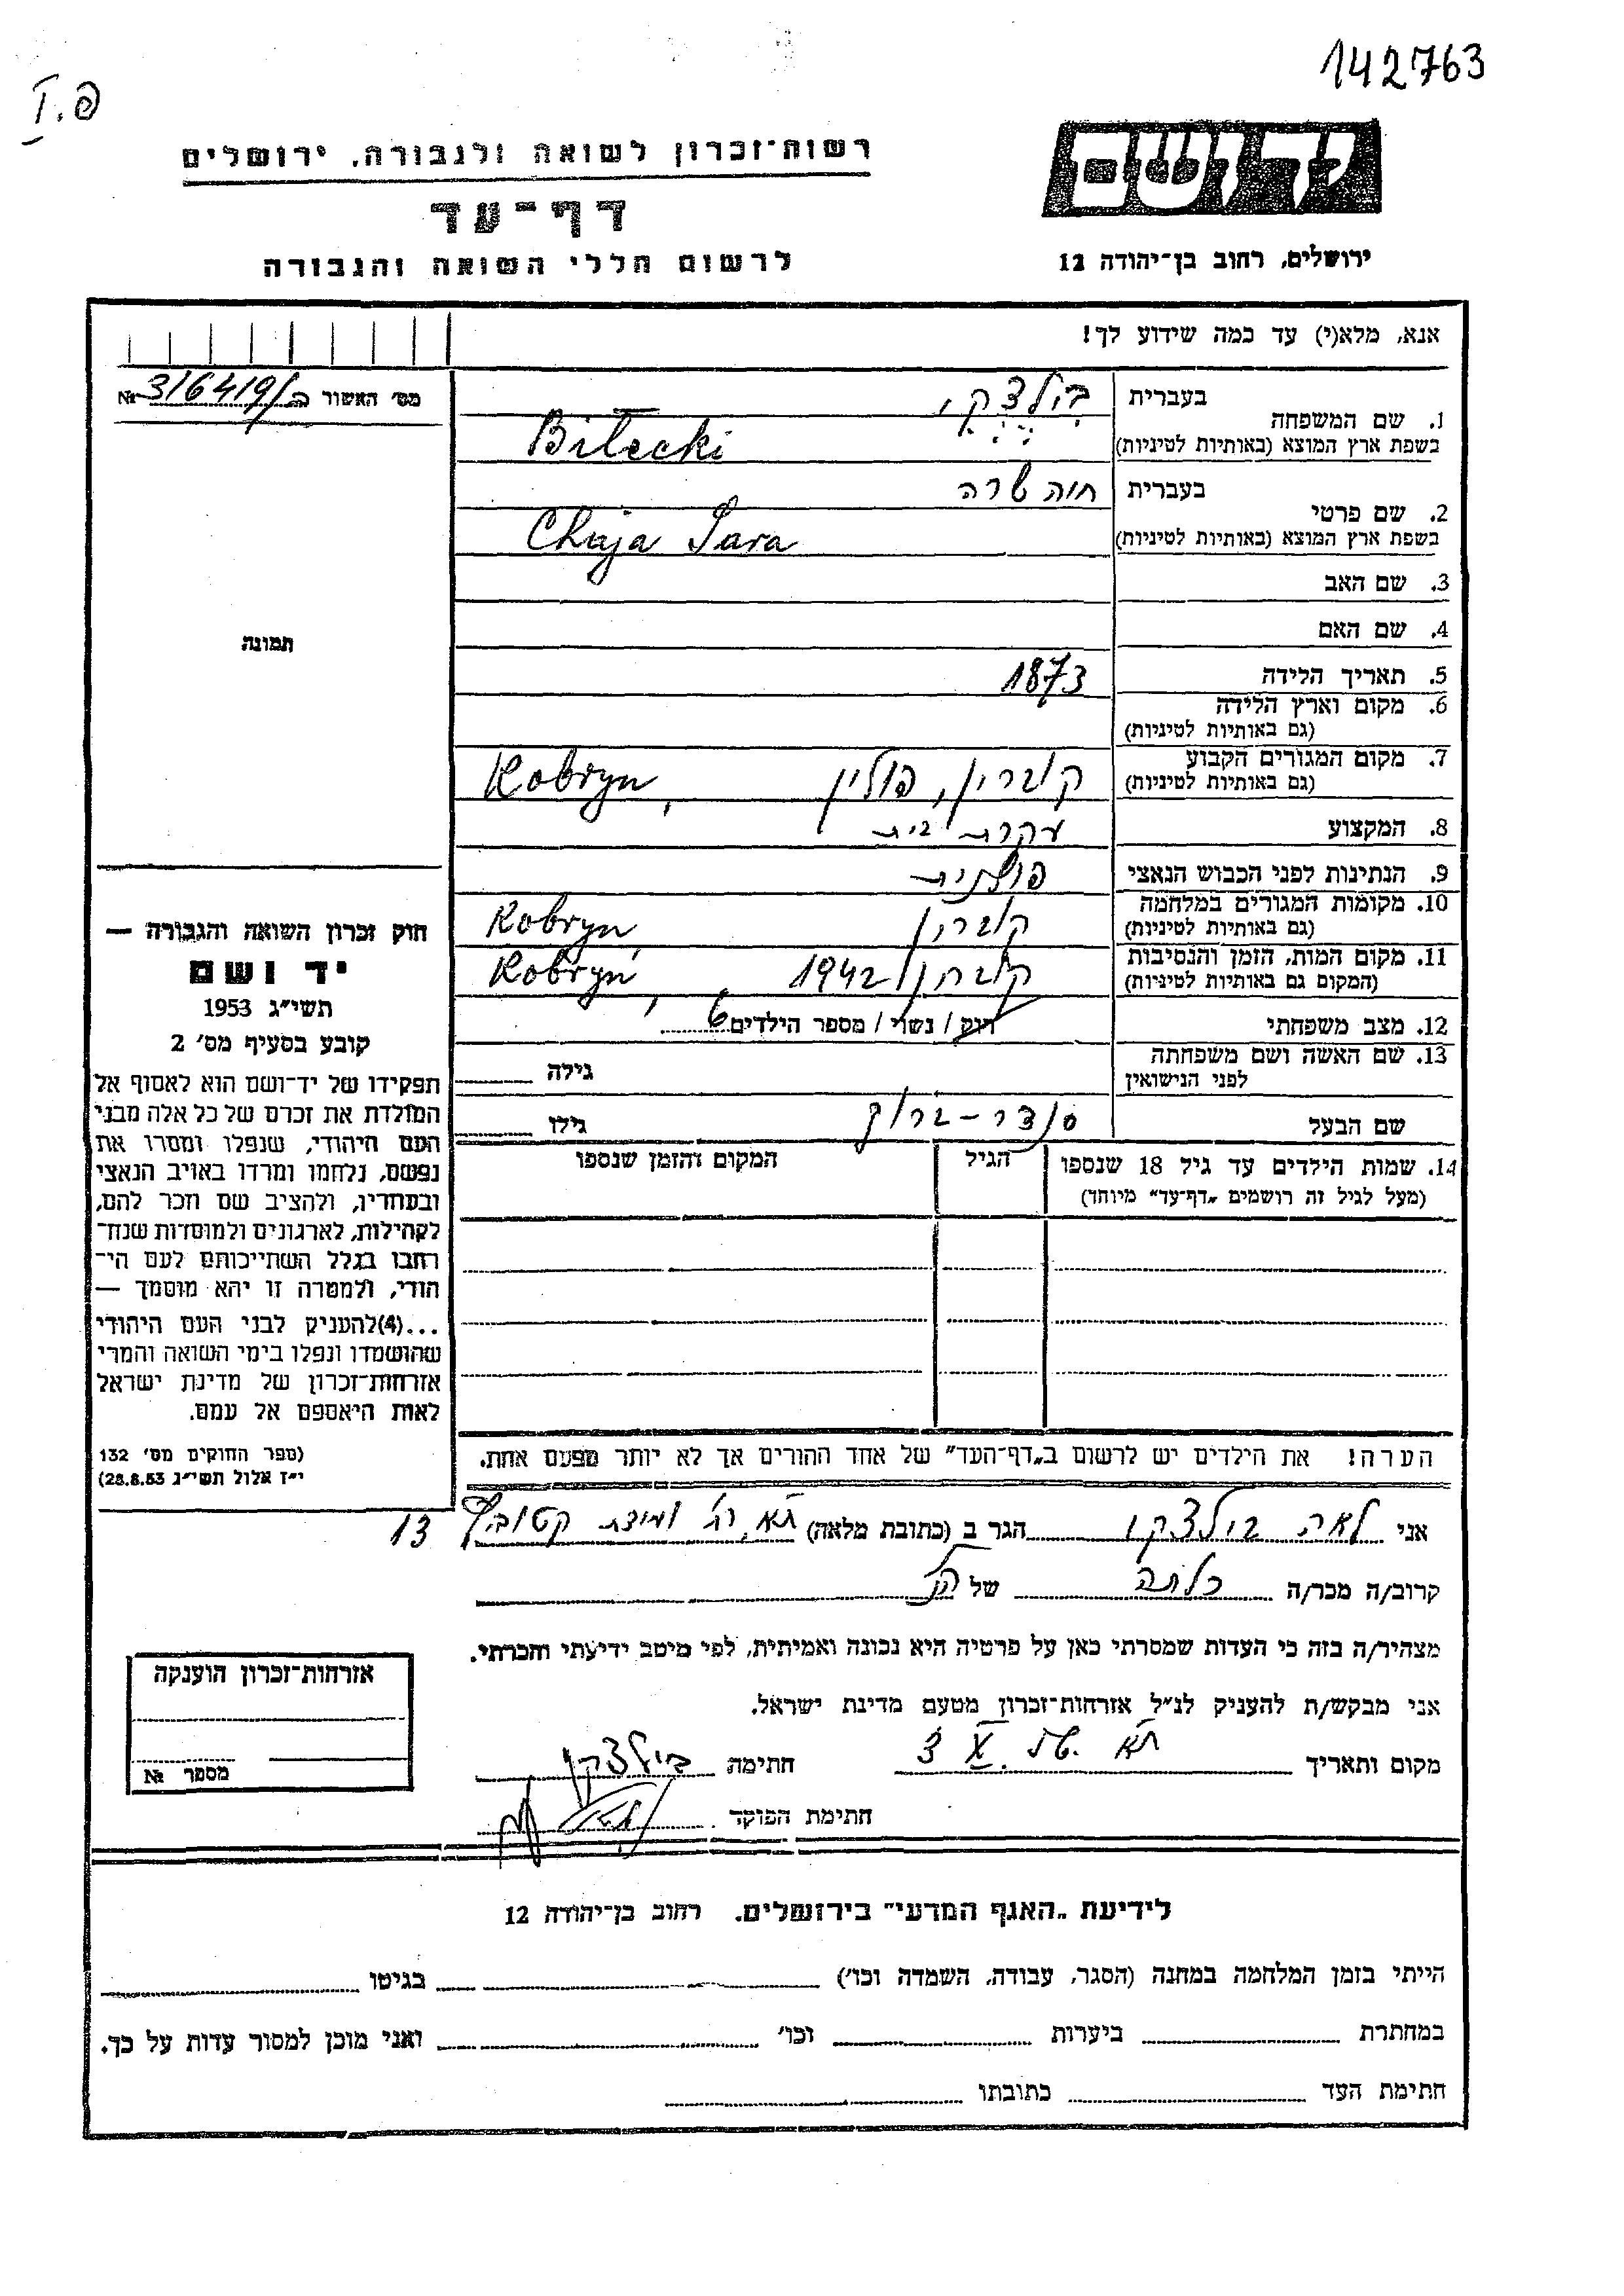 142763
I.פ
רשות־זכרון לשואה ולגבורה, ירושלים
דף־עד
לרשום חללי השואה והגבורה
יד ושם
ירושלים, רחוב בן־יהודה 12
אנא, מלא(י) עד כמה שידוע לך!
מס׳ האשור ב/316419 №
תמונה
1. שם המשפחה
בעברית בילצקי
בשפת ארץ המוצא (באותיות לטיניות) Bilecki
2. שם פרטי
בעברית חוה שרה
בשפת ארץ המוצא (באותיות לטיניות) Chaja Sara
3. שם האב
4. שם האם
5. תאריך הלידה 1873
6. מקום וארץ הלידה
(גם באותיות לטיניות)
7. מקום המגורים הקבוע קוברין, פולין Kobryn,
(גם באותיות לטיניות)
8. המקצוע עקרת בית
9. הנתינות לפני הכבוש הנאצי פולנית
10. מקומות המגורים במלחמה קוברין Kobryn
(גם באותיות לטיניות)
11. מקום המות, הזמן והנסיבות קוברין 1942 Kobryn,
(המקום גם באותיות לטיניות)
12. מצב משפחתי רווק / נשוי / מספר הילדים 6
13. שם האשה ושם משפחתה
לפני הנישואין גילה
שם הבעל סנדר-ברוך גילו
14. שמות הילדים עד גיל 18 שנספו הגיל המקום והזמן שנספו
(מעל לגיל זה רושמים „דף־עד״ מיוחד)
הערה! את הילדים יש לרשום ב„דף־העד״ של אחד ההורים אך לא יותר מפעם אחת.
חוק זכרון השואה והגבורה —
יד ושם
תשי״ג 1953
קובע בסעיף מס׳ 2
תפקידו של יד־ושם הוא לאסוף אל
המולדת את זכרם של כל אלה מבני
העם היהודי, שנפלו ומסרו את
נפשם, נלחמו ומרדו באויב הנאצי
ובעוזריו, ולהציב שם וזכר להם,
לקהילות, לארגונים ולמוסדות שנח־
רבו בגלל השתייכותם לעם הי־
הודי, ולמטרה זו יהא מוסמך —
...(4)להעניק לבני העם היהודי
שהושמדו ונפלו בימי השואה והמרי
אזרחות־זכרון של מדינת ישראל
לאות היאספם אל עמם.
(ספר החוקים מס׳ 132
י״ז אלול תשי״ג 28.8.53)
אני לאה בילצקי הגר ב (כתובת מלאה) ת״א, רח׳ קטוביץ 13
קרוב/ה מכר/ה כלתה של הנ״ל
מצהיר/ה בזה כי העדות שמסרתי כאן על פרטיה היא נכונה ואמיתית, לפי מיטב ידיעתי והכרתי.
אני מבקש/ת להעניק לנ״ל אזרחות־זכרון מטעם מדינת ישראל.
מקום ותאריך ת״א חתימה בילצקי
חתימת הפוקד
אזרחות־זכרון הוענקה
מספר №
לידיעת „האגף המדעי״ בירושלים, רחוב בן־יהודה 12
הייתי בזמן המלחמה במחנה (הסגר, עבודה, השמדה וכו׳) בגיטו
במחתרת ביערות וכו׳ ואני מוכן למסור עדות על כך.
חתימת העד כתובתו